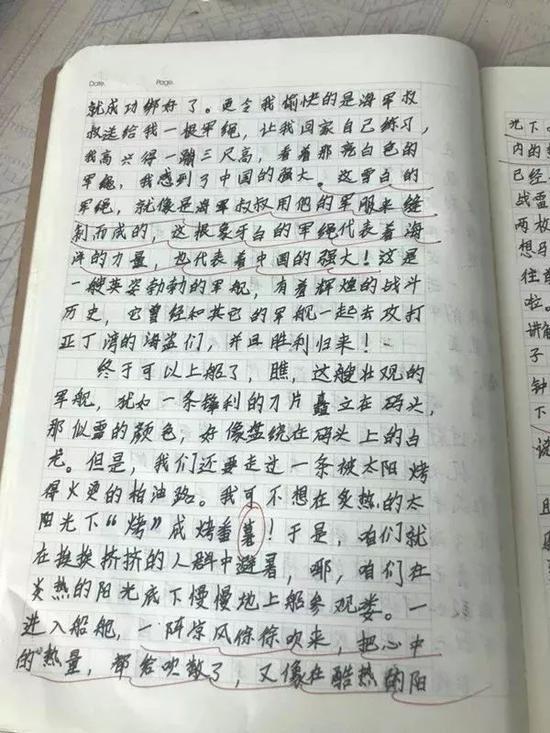 Date. Page.
就成功绑好了。更令我愉快的是海军叔
叔送给我一根军绳，让我回家自己练习，
我高兴得一蹦三尺高，看着那亮白色的
军绳，我感到了中国的强大。这雪白的
军绳，就像是海军叔叔用他的军服来缝
制而成的，这根象牙白的军绳代表着海
洋的力量，也代表着中国的强大！这是
一艘英姿勃勃的军舰，有着辉煌的战斗
历史，它曾经和其它的军舰一起去攻打
亚丁湾的海盗们，并且胜利归来！
终于可以上船了，瞧，这艘壮观的
军舰，犹如一条锋利的刀片矗立在码头，
那似雪的颜色，好像盘绕在码头上的白
光。但是，我们还要走过一条被太阳烤
得火烫的柏油路。我可不想在炙热的太
阳光下“烤”成烤番薯！于是，咱们就
在挨挨挤挤的人群中避暑，哪，咱们在
炎热的阳光底下慢慢地上船参观喽。一
进入船舱，一阵凉风徐徐吹来，把心中
的“热量，都给吹散了，又像在酷热的阳
光下
内的
已经
战雷
两枚
想马
往
啦。
讲解
子
钟
下